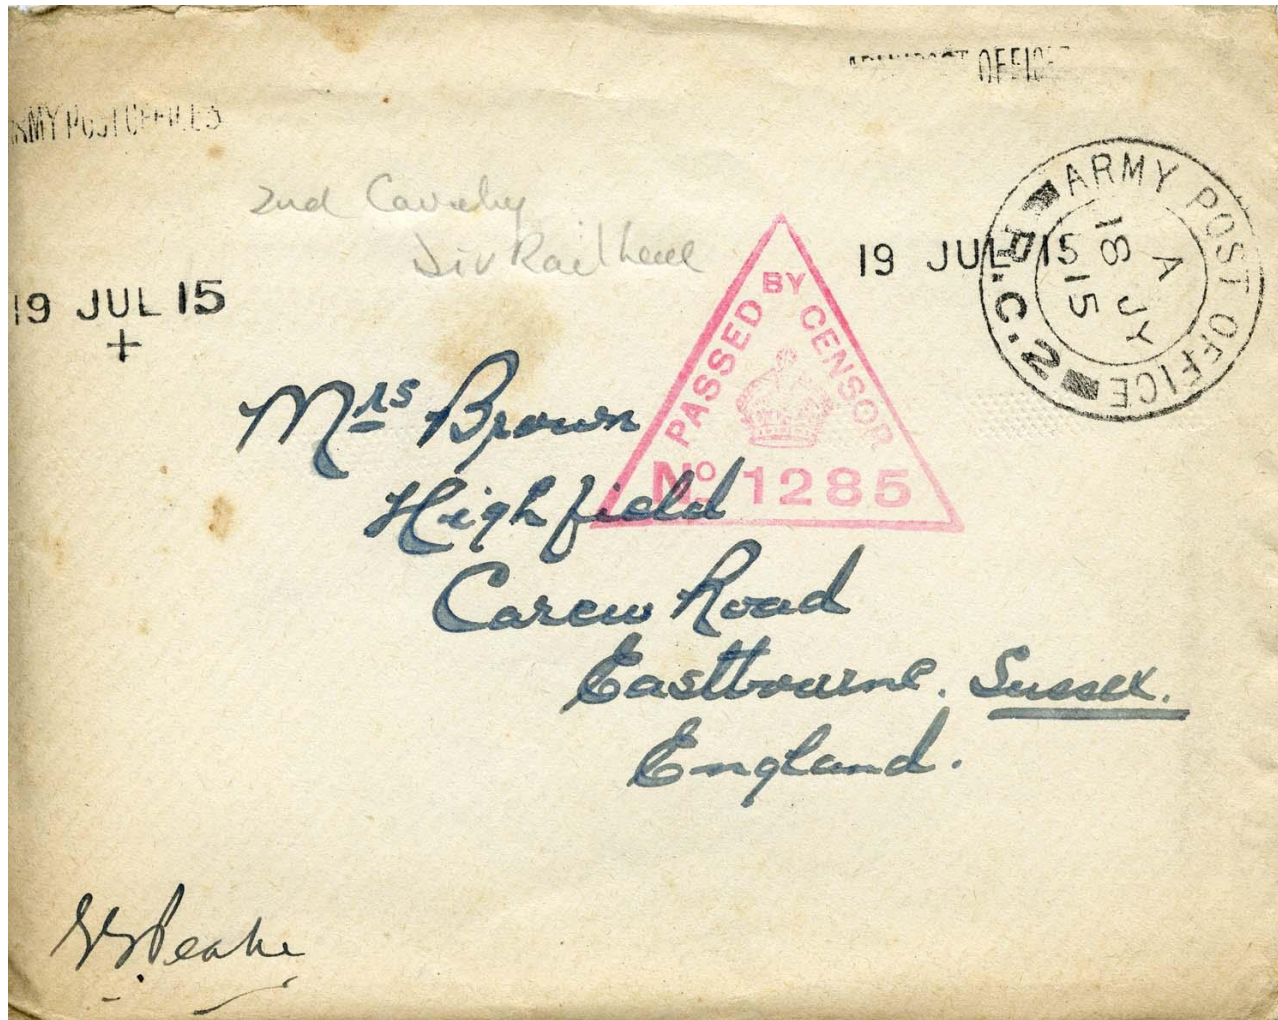 ARMY POST OFFICE
ARMY POST OFFICE S
2nd Cavalry
Div Railhead
19 JUL 15
19 JUL 15
+
ARMY POST OFFICE
R.C.2
A
18 JY
15
PASSED BY CENSOR
No 1285
Mrs Brown
Highfield
Carew Road
Eastbourne. Sussex.
England.
Peake